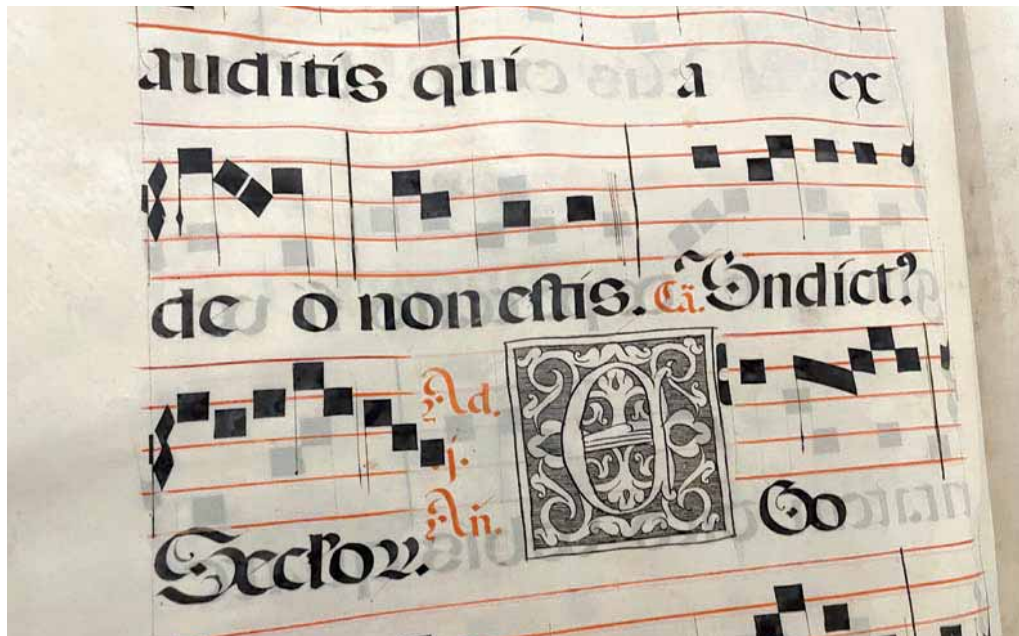 auditis qui a ex
de o non estis. Cã. Bndictꝰ.
Ad.
j.
Añ.
Seclov. E Go